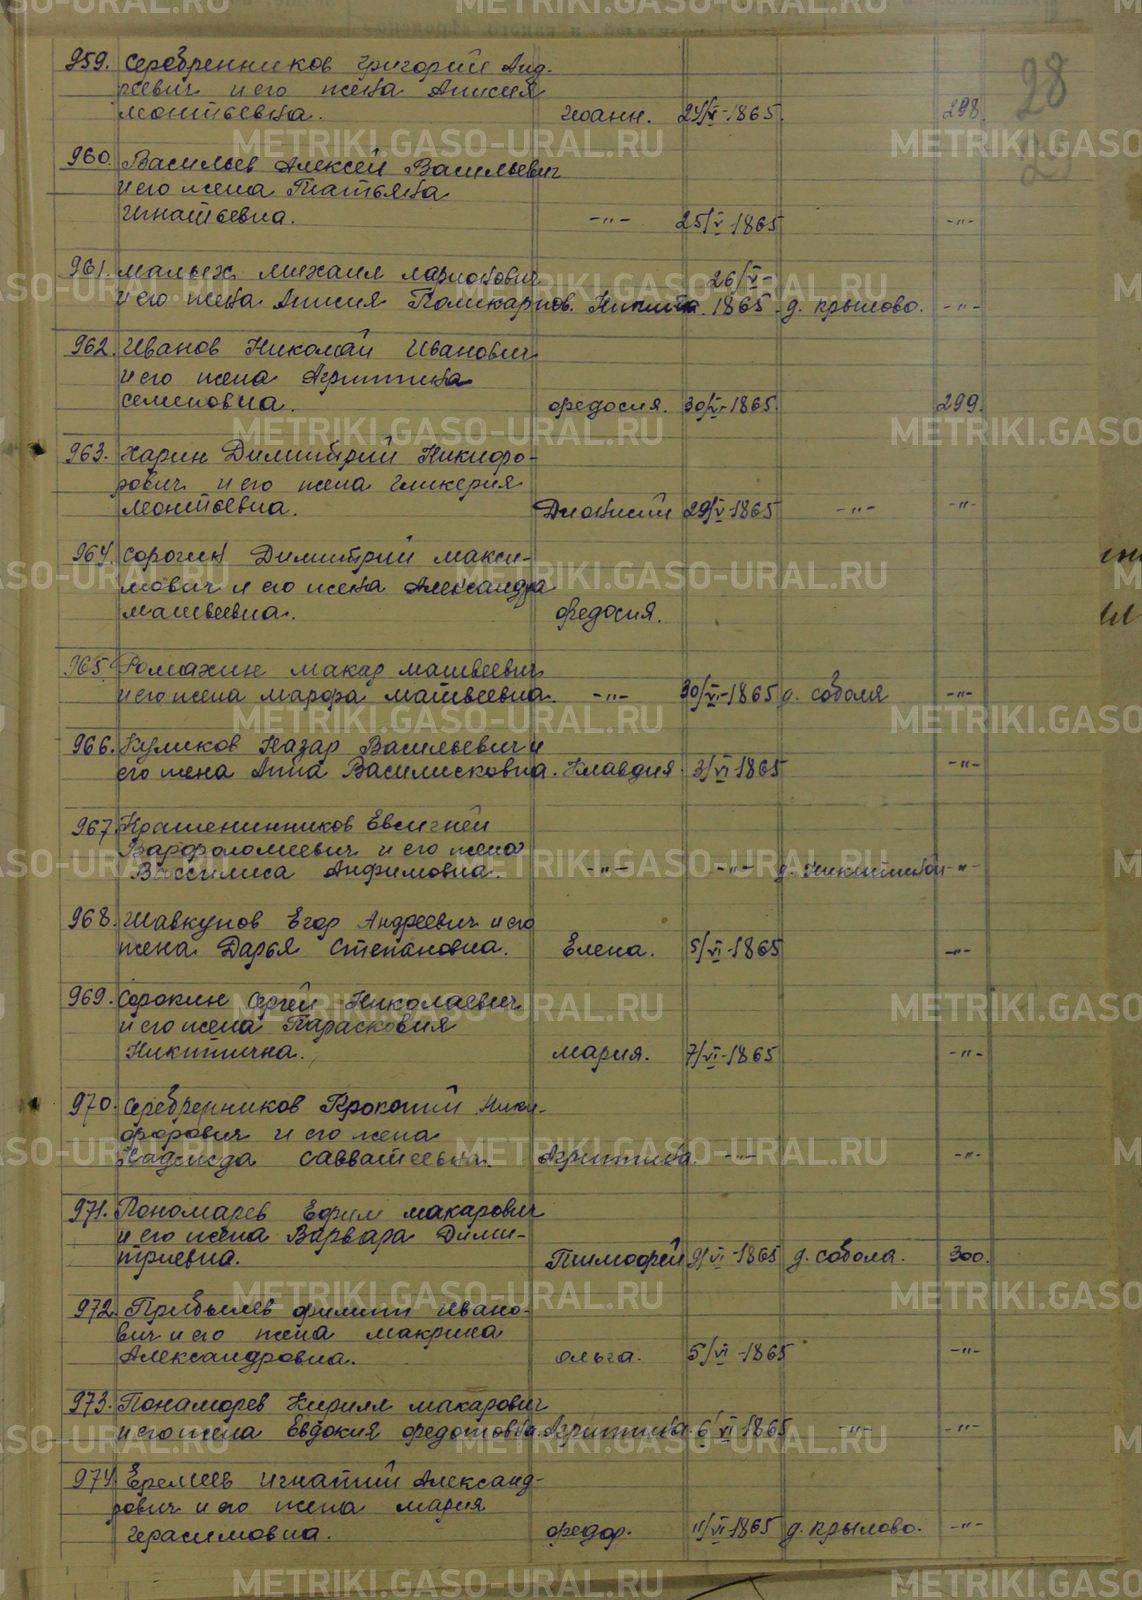 28
959. Серебренников Григорий Анд-
реевич и его жена Анисия
Леонтьевна. Иоанн. 24/V-1865. 298.
960. Васильев Алексей Васильевич
и его жена Татьяна
Игнатьевна. -"- 25/V-1865 -"-
961. Малых Михаил Ларионович 26/V-
и его жена Анисия Поликарпов. Никита. 1865. д. Крылово. -"-
962. Иванов Николай Иванович
и его жена Агриппина
Семеновна. Федосия. 30/V-1865. 299.
963. Харин Димитрий Никифо-
рович и его жена Гликерия
Леонтьевна. Дионисий 29/V-1865 -"- -"-
964. Сорогин Димитрий Макси-
мович и его жена Александра
Матвеевна. Федосия.
965. Ромахин Макар Матвеевич
и его жена Марфа Матвеевна. -"- 30/VI-1865 д. Соболя -"-
966. Куликов Назар Васильевич и
его жена Анна Василисковна. Клавдия. 3/VI-1865 -"-
967. Крашенинников Евсигней
Варфоломеевич и его жена
Вассилиса Анфимовна. -"- -"- д. Никитиной -"-
968. Шавкунов Егор Андреевич и его
жена Дарья Степановна. Елена. 5/VI-1865 -"-
969. Сорокин Сергей Николаевич
и его жена Парасковия
Никитична. Мария. 7/VI-1865 -"-
970. Серебренников Прокопий Ники-
форович и его жена
Надежда Савватеевна. Агриппина. -"- -"-
971. Пономарев Ефим Макарович
и его жена Варвара Дими-
триевна. Тимофей 9/VI-1865 д. Собола. 300.
972. Прибылев Филипп Ивано-
вич и его жена Макрина
Александровна. Ольга. 5/VI-1865 -"-
973. Понаморев Кирилл Макарович
и его жена Евдокия Федотовна. Агриппина. 6/VI 1865 -"- -"-
974. Еремеев Игнатий Александ-
рович и его жена Мария
Герасимовна. Федор. 11/VI-1865 д. Крылово. -"-
METRIKI.GASO-URAL.RU